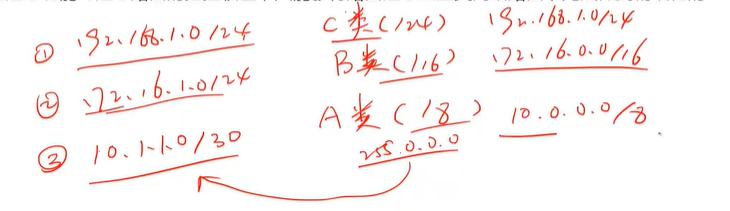 ① 192.168.1.0/24
② 172.16.1.0/24
③ 10.1.1.0/30
C类(/24) 192.168.1.0/24
B类(/16) 172.16.0.0/16
A类(/8) 10.0.0.0/8
255.0.0.0